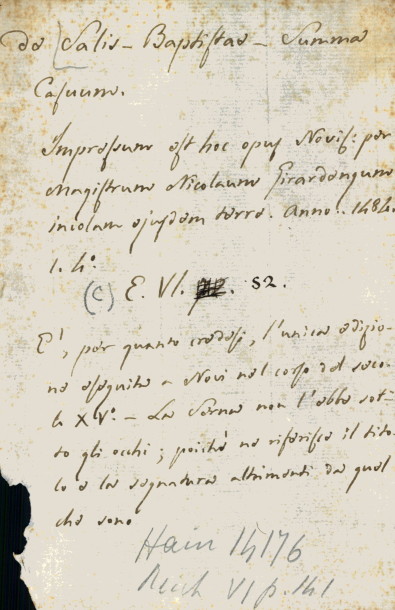 de Salis - Baptistae - Summa
Casuum.
Impressum est hoc opus Novis: per
Magistrum Nicolaum Girardengum
incolam ejusdem terre. Anno. 1484.
1. 4.°
(C) E. VI. . 82.
E', per quanto credesi, l'unica edizio-
ne eseguita a Novi nel corso del seco-
lo XV.° - La Serna non l'ebbe sot-
to gli occhi; poichè ne riferisce il tito-
lo e la segnatura altrimenti da quel
che sono
Hain 14176
Reich VI p. 141